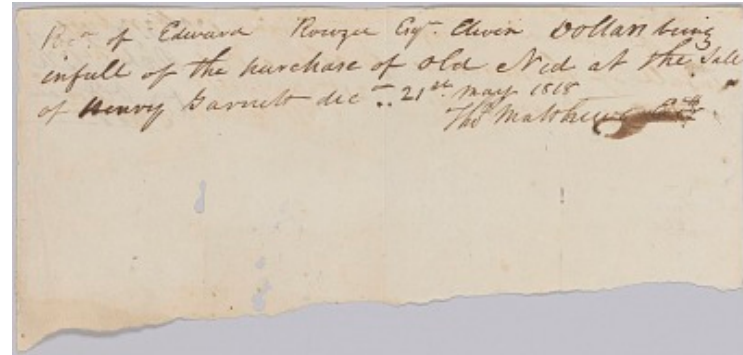 Recd. of Edward Rowzee Esqr. Eleven Dollars being
infull of the purchase of old Ned at the Sale
of Henry Garnett decd.. 21st. may 1818
Tho. Matthews